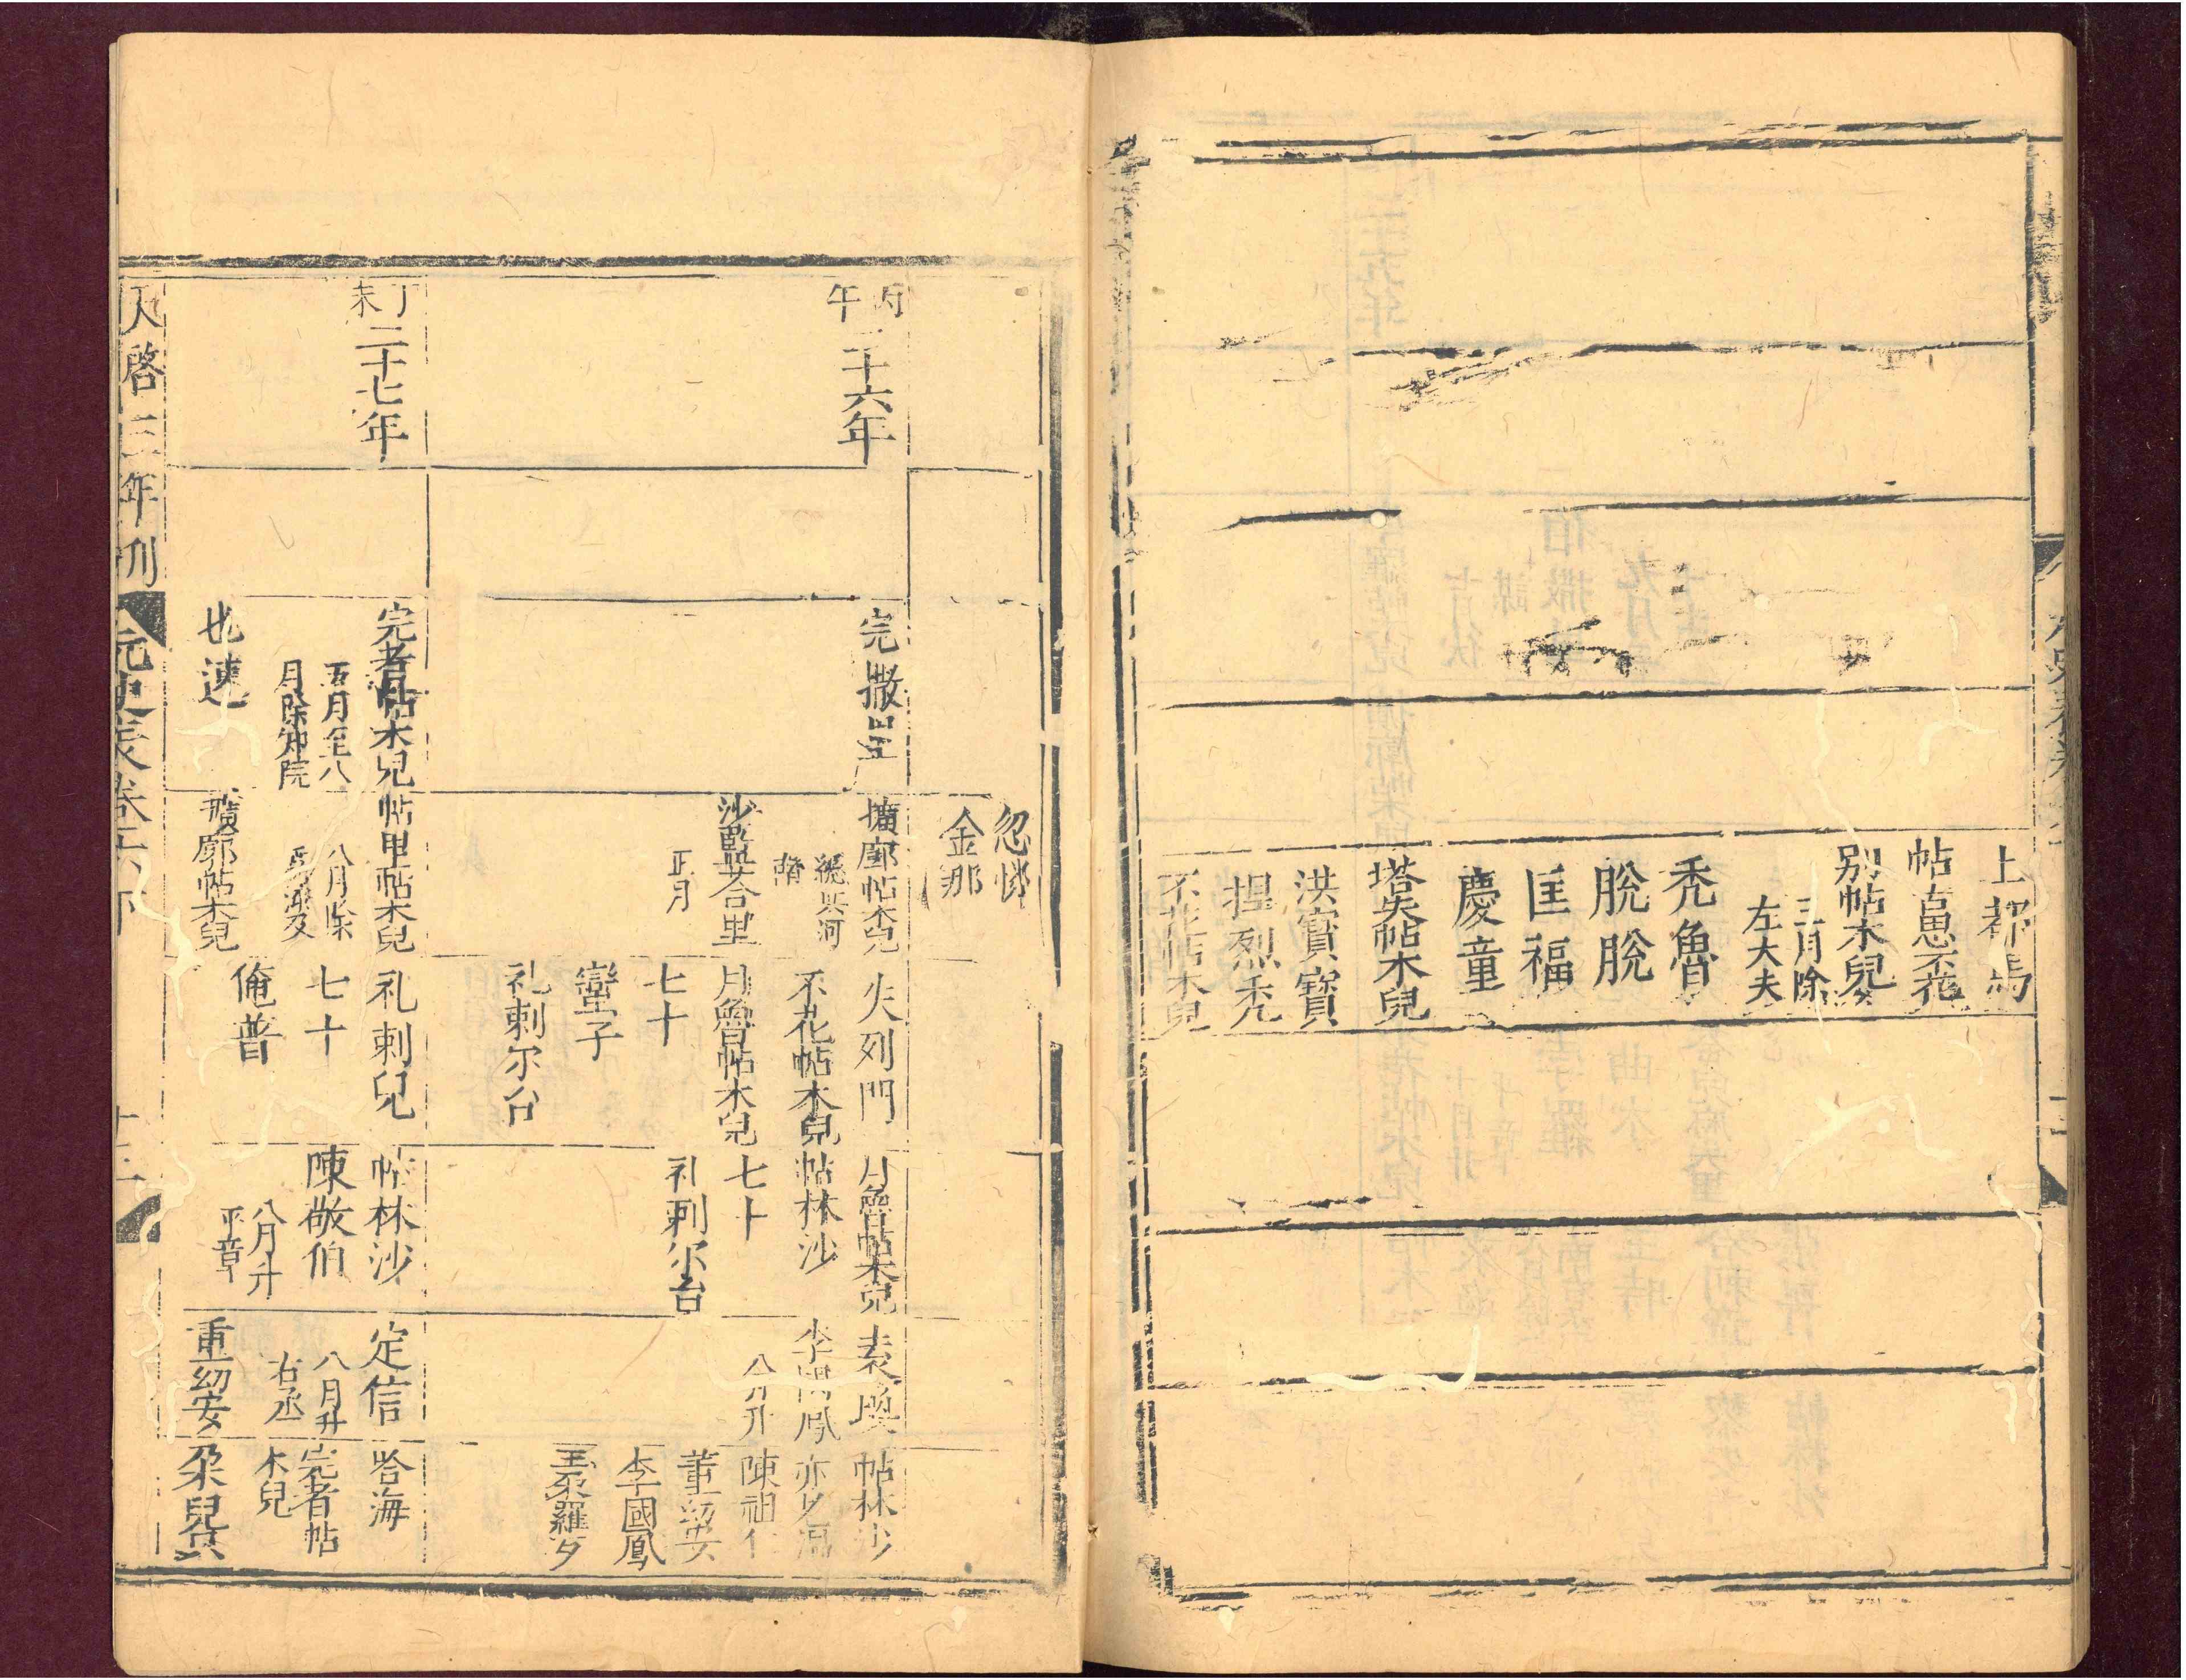 上都馬
帖古思不花
別帖木兒
三月除
左大夫
禿魯
脫脫
匡福
慶童
塔失帖木兒
洪寶寶
揑烈禿
不花帖木兒
忽
金那
丙
午
二十六年
完
撒
擴廓帖木兒
總兵河
沙藍荅里
正月
失列門
不花帖木兒
月魯帖木兒
七十
蠻子
札剌尔台
月魯帖木兒
帖林沙
七十
札剌尔台
袁渙
李國鳳
帖林沙
陳祖仁
董㓜安
李國鳳
王朶羅歹
丁
未
二十七年
完者帖木兒
五月至八
月除知院
也速
帖里帖木兒
八月除
擴廓帖木兒
札剌兒
七十
俺普
帖林沙
陳敬伯
八月升
平章
定信
八月升
右丞
董㓜安
哈海
完者帖
木兒
朶兒只
天啓三年刊
元史表卷六下
十三